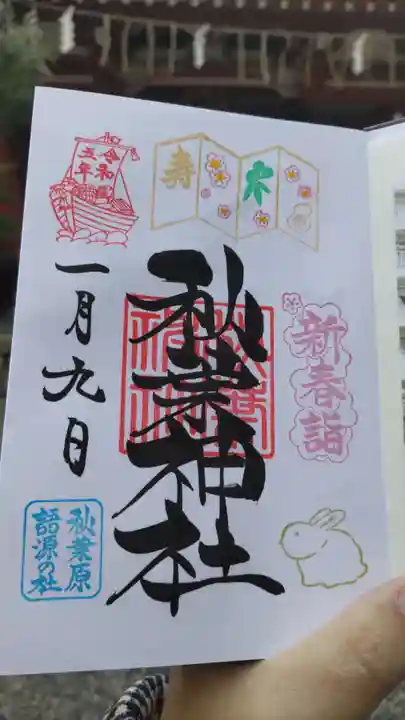 新春詣
寿
秋葉神社
秋葉神社
令和
五年
一月九日
秋葉原
語源の社